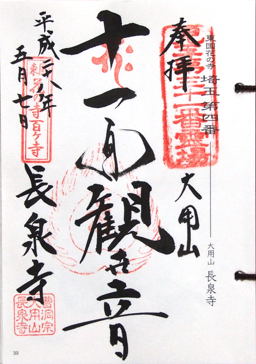 東国花の寺 埼玉 第四番
大用山 長泉寺
奉拝
大用山
十一面観世音
平成二八年
五月七日
東国花の寺百ヶ寺
長泉寺
曹洞宗
大用山
長泉寺
39